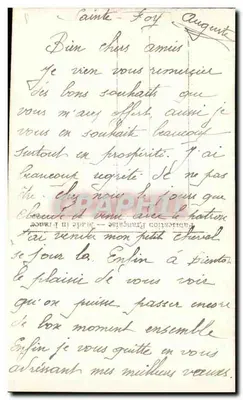 Sainte-Foy Auguste
Bien chers amis
Je vien vous remercier
des bons souhaits que
vous m'avez offert, aussi je
vous en souhaite beaucoup
surtout en prospérité. J'ai
beaucoup regretté de ne pas
être chez nous le jour que
est venu avec le
J'ai vendu mon petit cheval
se jour la. Enfin à bientôt
le plaisir de vous voir
qu'on puisse passer encore
de bon moment ensemble
Enfin je vous quitte en vous
adressant mes meilleurs vœux.
Fabrication Française - Made in France